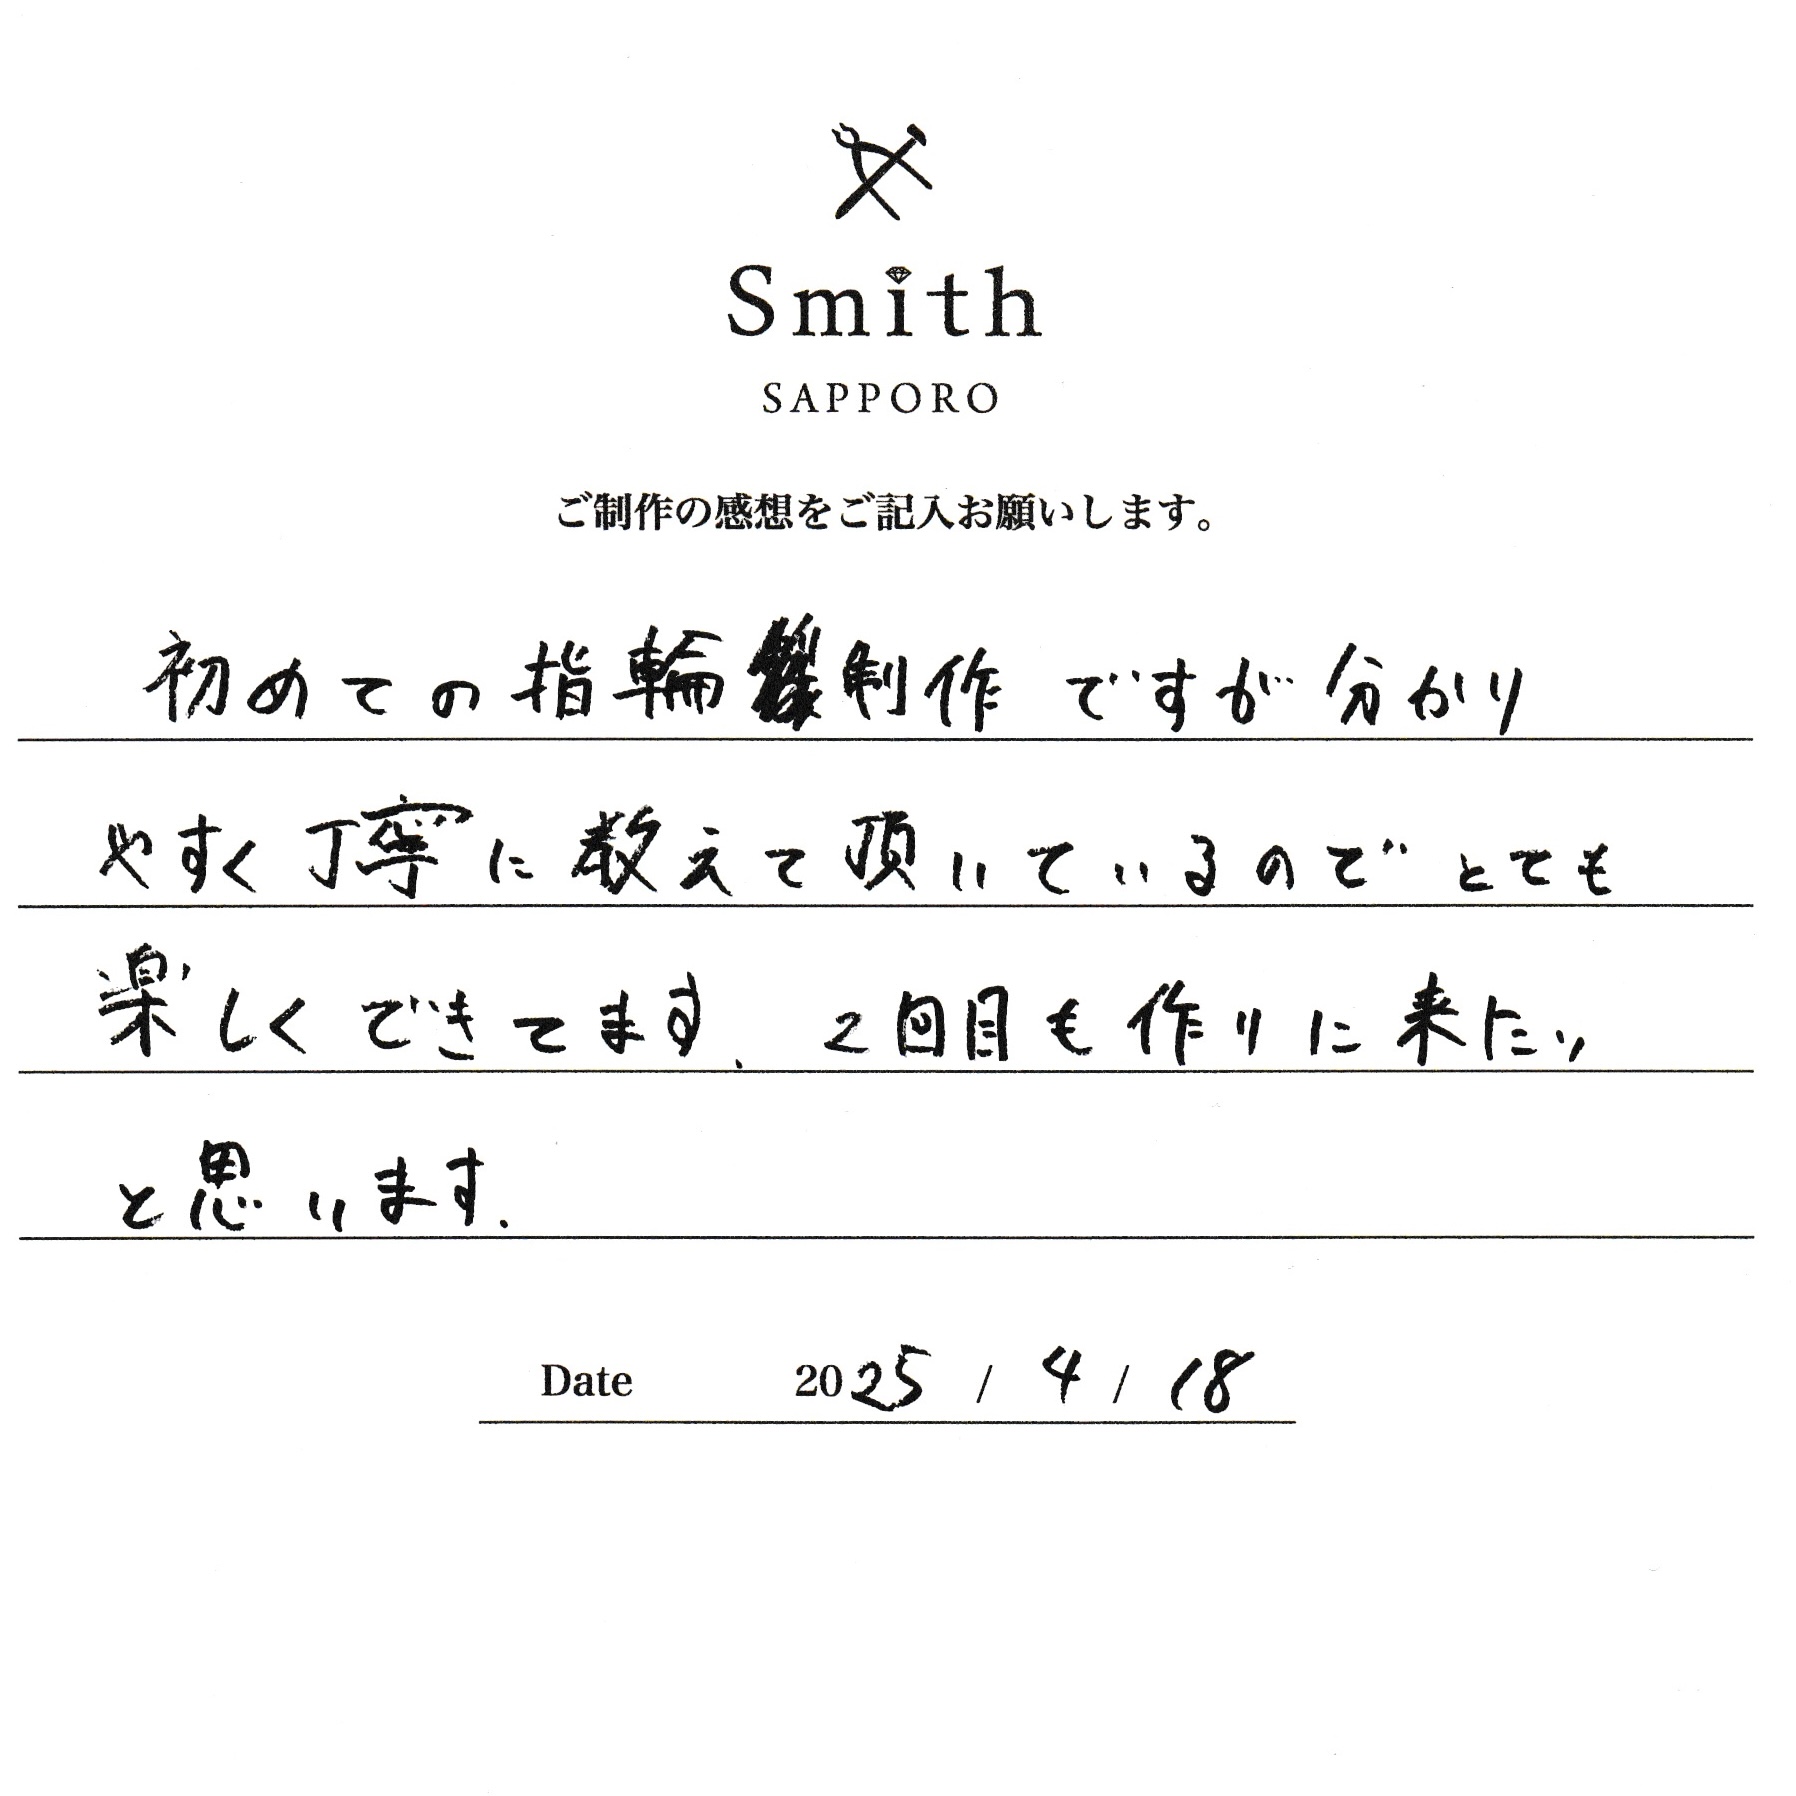 Smith
SAPPORO
ご制作の感想をご記入お願いします。
初めての指輪制作ですが分かり
やすく丁寧に教えて頂いているのでとても
楽しくできてます. 2回目も作りに来たい
と思います.
Date 2025 / 4 / 18